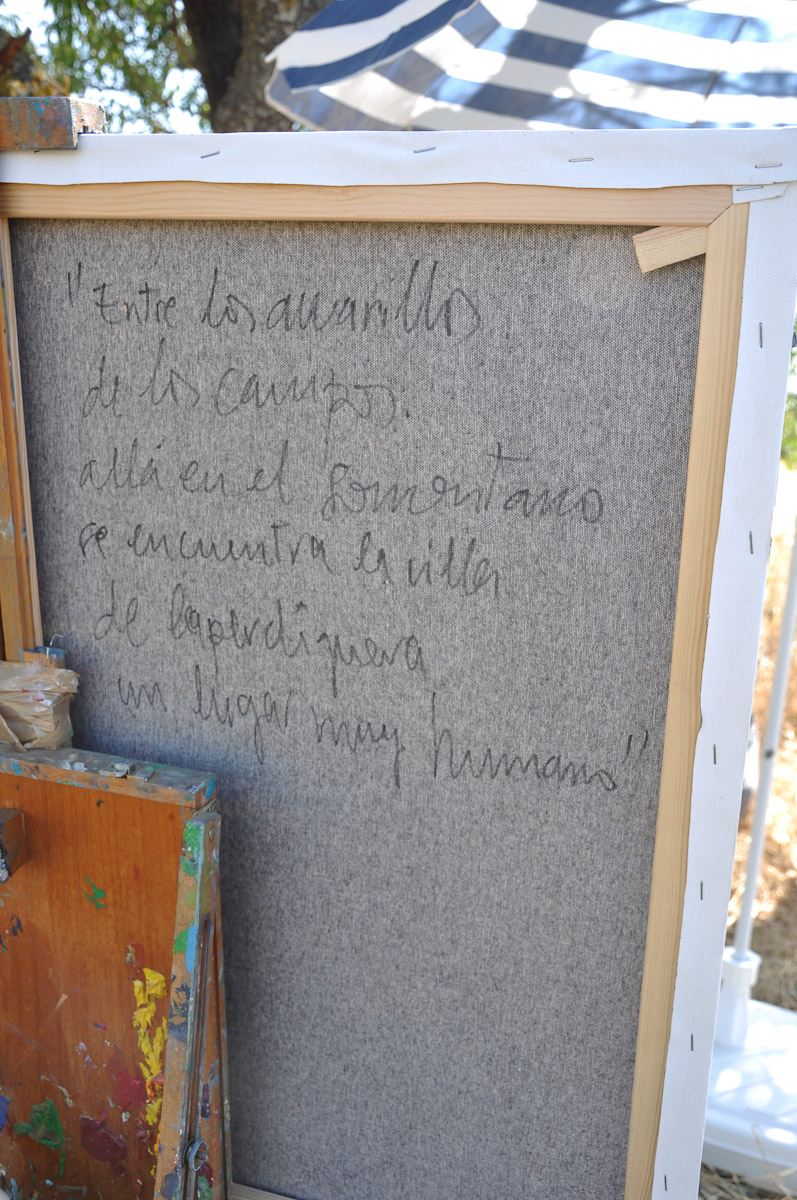 "Entre los amarillos
de los campos.
allá en el Somontano
se encuentra la villa
de laperdiguera
un lugar muy humano"